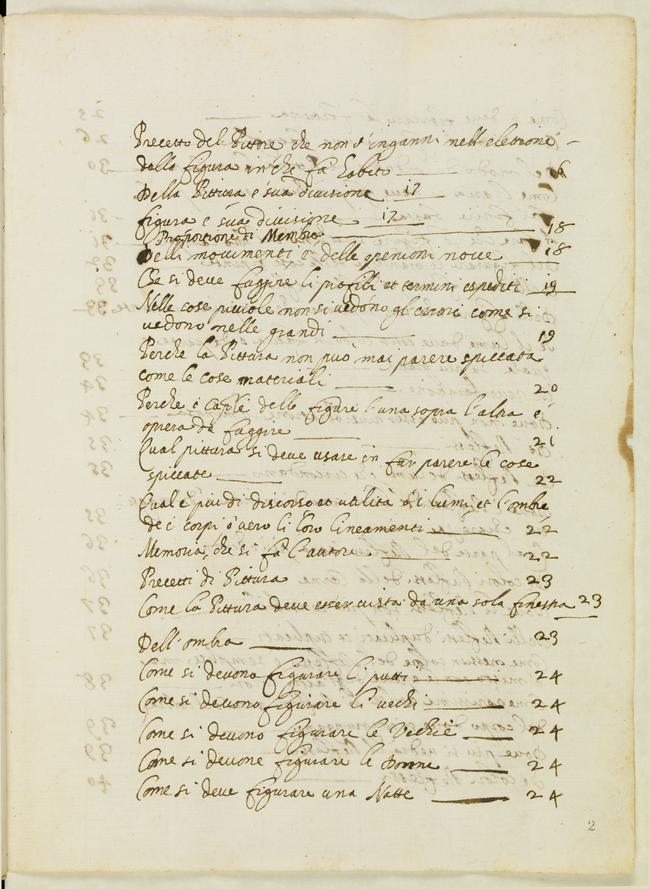 Precetto del Pittore che non s'inganni nell'elettione
della figura in che fa habito 16
Della Pittura e sua divisione 17
figura e sua divisione 17
Proportione di Membra 18
Delli movimenti e delle operationi nove 18
Che si deve fuggire li profili et termini espediti 19
Nelle cose piccole non si vedono gli errori come si
vedono nelle grandi 19
Perche la Pittura non può mai parere spiccata
come le cose materiali 20
Perche i capitoli delle figure l'una sopra l'altra è
opera da fuggire 21
Qual pittura si deve usare in far parere le cose
spiccate 22
Qual è piu di discorso et utilità ò i lumi et l'ombre
de i corpi ò vero li loro lineamenti 22
Memoria che si fa l'autore 22
Precetti di Pittura 23
Come la Pittura deve esser vista da una sola finestra 23
Dell'ombra 23
Come si devono figurare li putti 24
Come si devono figurare li vechi 24
Come si devono figurare le Vechie 24
Come si devone figurare le Donne 24
Come si deve figurare una Notte 24
2